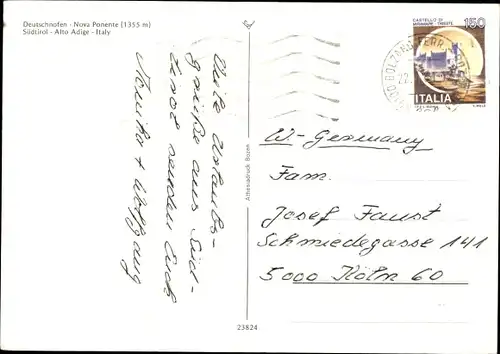 Deutschnofen - Nova Ponente (1355 m)
Südtirol - Alto Adige - Italy
Viele Urlaubs-
grüße aus Süd-
tirol senden Euch
Monika + Wolfgang
Athesiadruck Bozen
23824
CASTELLO DI
MIRAMARE - TRIESTE
150
ITALIA
BOLZANO FERROVIA
W-Germany
Fam.
Josef Faust
Schmiedegasse 141
5000 Köln 60